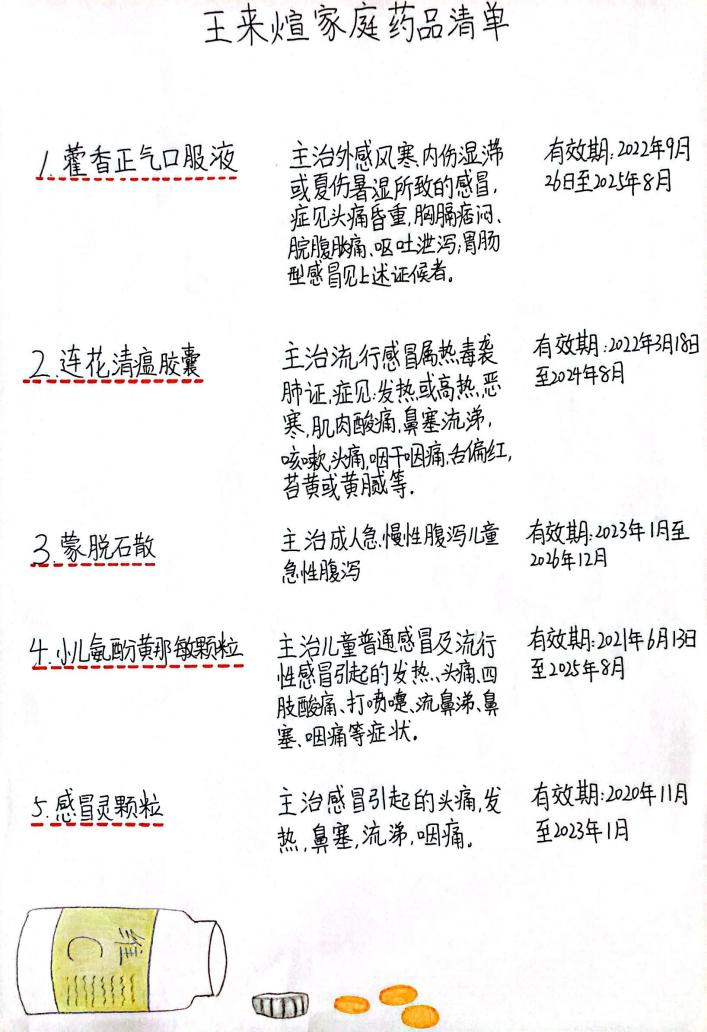 王来煊家庭药品清单
1.藿香正气口服液
主治外感风寒,内伤湿滞
或夏伤暑湿所致的感冒,
症见头痛昏重,胸膈痞闷、
脘腹胀痛、呕吐泄泻;胃肠
型感冒见上述证候者。
有效期:2022年9月
26日至2025年8月
2.连花清瘟胶囊
主治流行感冒属热毒袭
肺证,症见:发热或高热,恶
寒,肌肉酸痛,鼻塞流涕,
咳嗽,头痛,咽干咽痛,舌偏红,
苔黄或黄腻等.
有效期:2022年3月18日
至2024年8月
3.蒙脱石散
主治成人急,慢性腹泻儿童
急性腹泻
有效期:2023年1月至
2026年12月
4.小儿氨酚黄那敏颗粒
主治儿童普通感冒及流行
性感冒引起的发热、头痛、四
肢酸痛、打喷嚏、流鼻涕、鼻
塞、咽痛等症状.
有效期:2021年6月13日
至2025年8月
5.感冒灵颗粒
主治感冒引起的头痛,发
热,鼻塞,流涕,咽痛。
有效期:2020年11月
至2023年1月
维
C